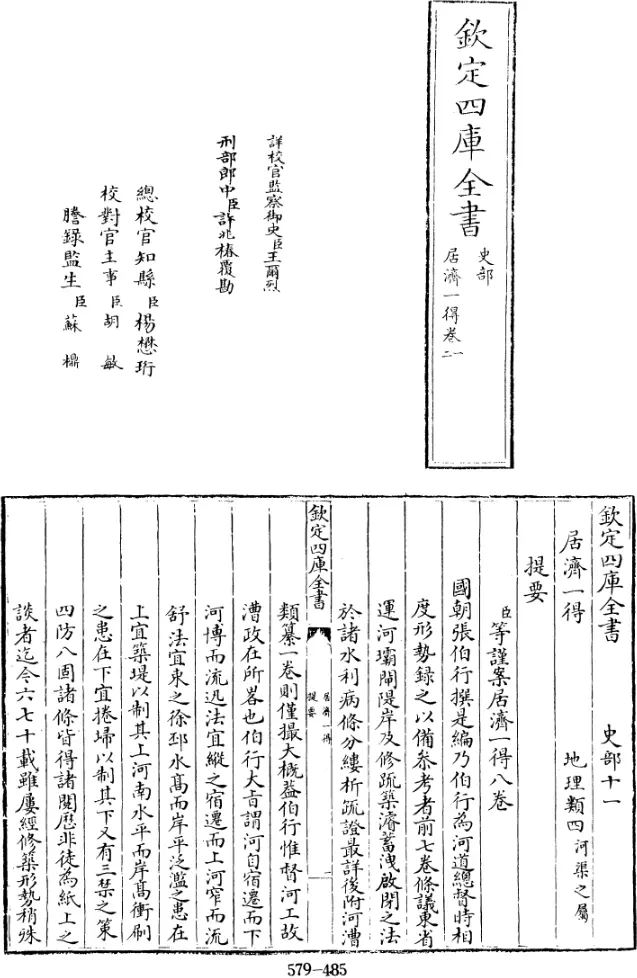 欽定四庫全書
史部
居濟一得卷一二
詳校官監察御史臣王爾烈
刑部郎中臣許兆椿覆勘
總校官知縣臣楊懋珩
校對官主事臣胡敏
謄錄監生臣蘇檙
欽定四庫全書 史部十一
居濟一得 地理類四河渠之屬
提要
臣等謹案居濟一得八卷
國朝張伯行撰是編乃伯行為河道總督時相
度形勢錄之以備叅考者前七卷條議東省
運河壩閘隄岸及修疏築濬蓄洩啟閉之法
於諸水利病條分縷析疏證最詳後附河漕
欽定四庫全書
居濟一得
提要
一
類纂一卷則僅撮大概葢伯行惟督河工故
漕政在所畧也伯行大㫖謂河自宿遷而下
河博而流迅法宜縱之宿遷而上河窄而流
舒法宜束之徐邳水髙而岸平泛濫之患在
上宜築堤以制其上河南水平而岸髙衝刷
之患在下宜捲埽以制其下又有三禁之策
四防八固諸條皆得諸閱歷非徒為紙上之
談者迄今六七十載雖屢經修築形勢稍殊
579-485